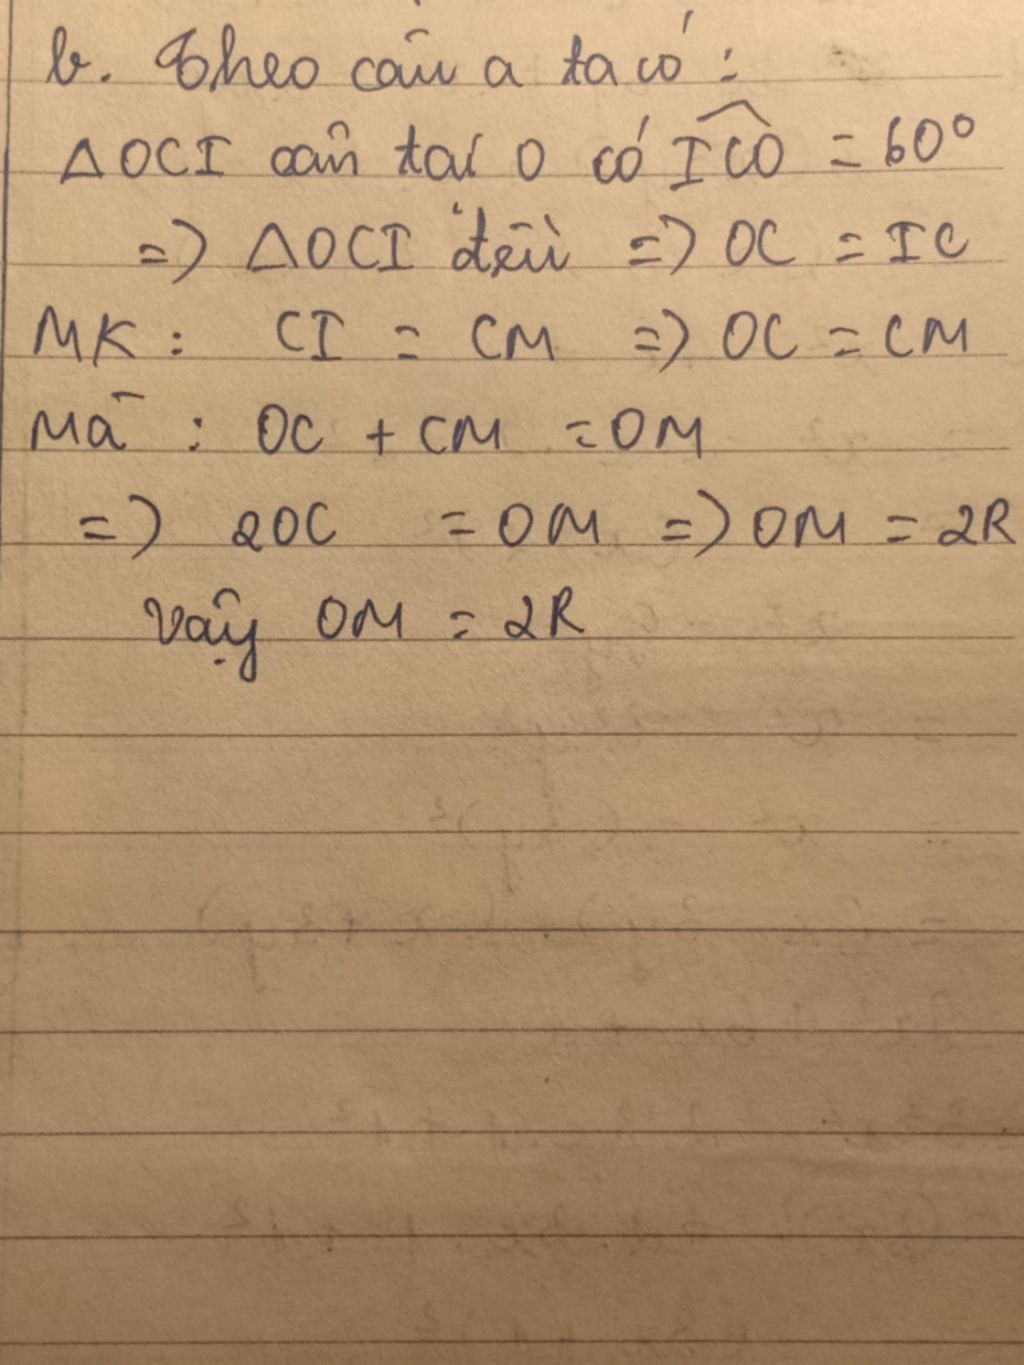 b. Theo câu a ta có :
△OCI cân tại O có \widehat{ICO} = 60°
=> △OCI đều => OC = IC
MK : CI = CM => OC = CM
Mà : OC + CM = OM
=> 2OC = OM => OM = 2R
Vậy OM = 2R